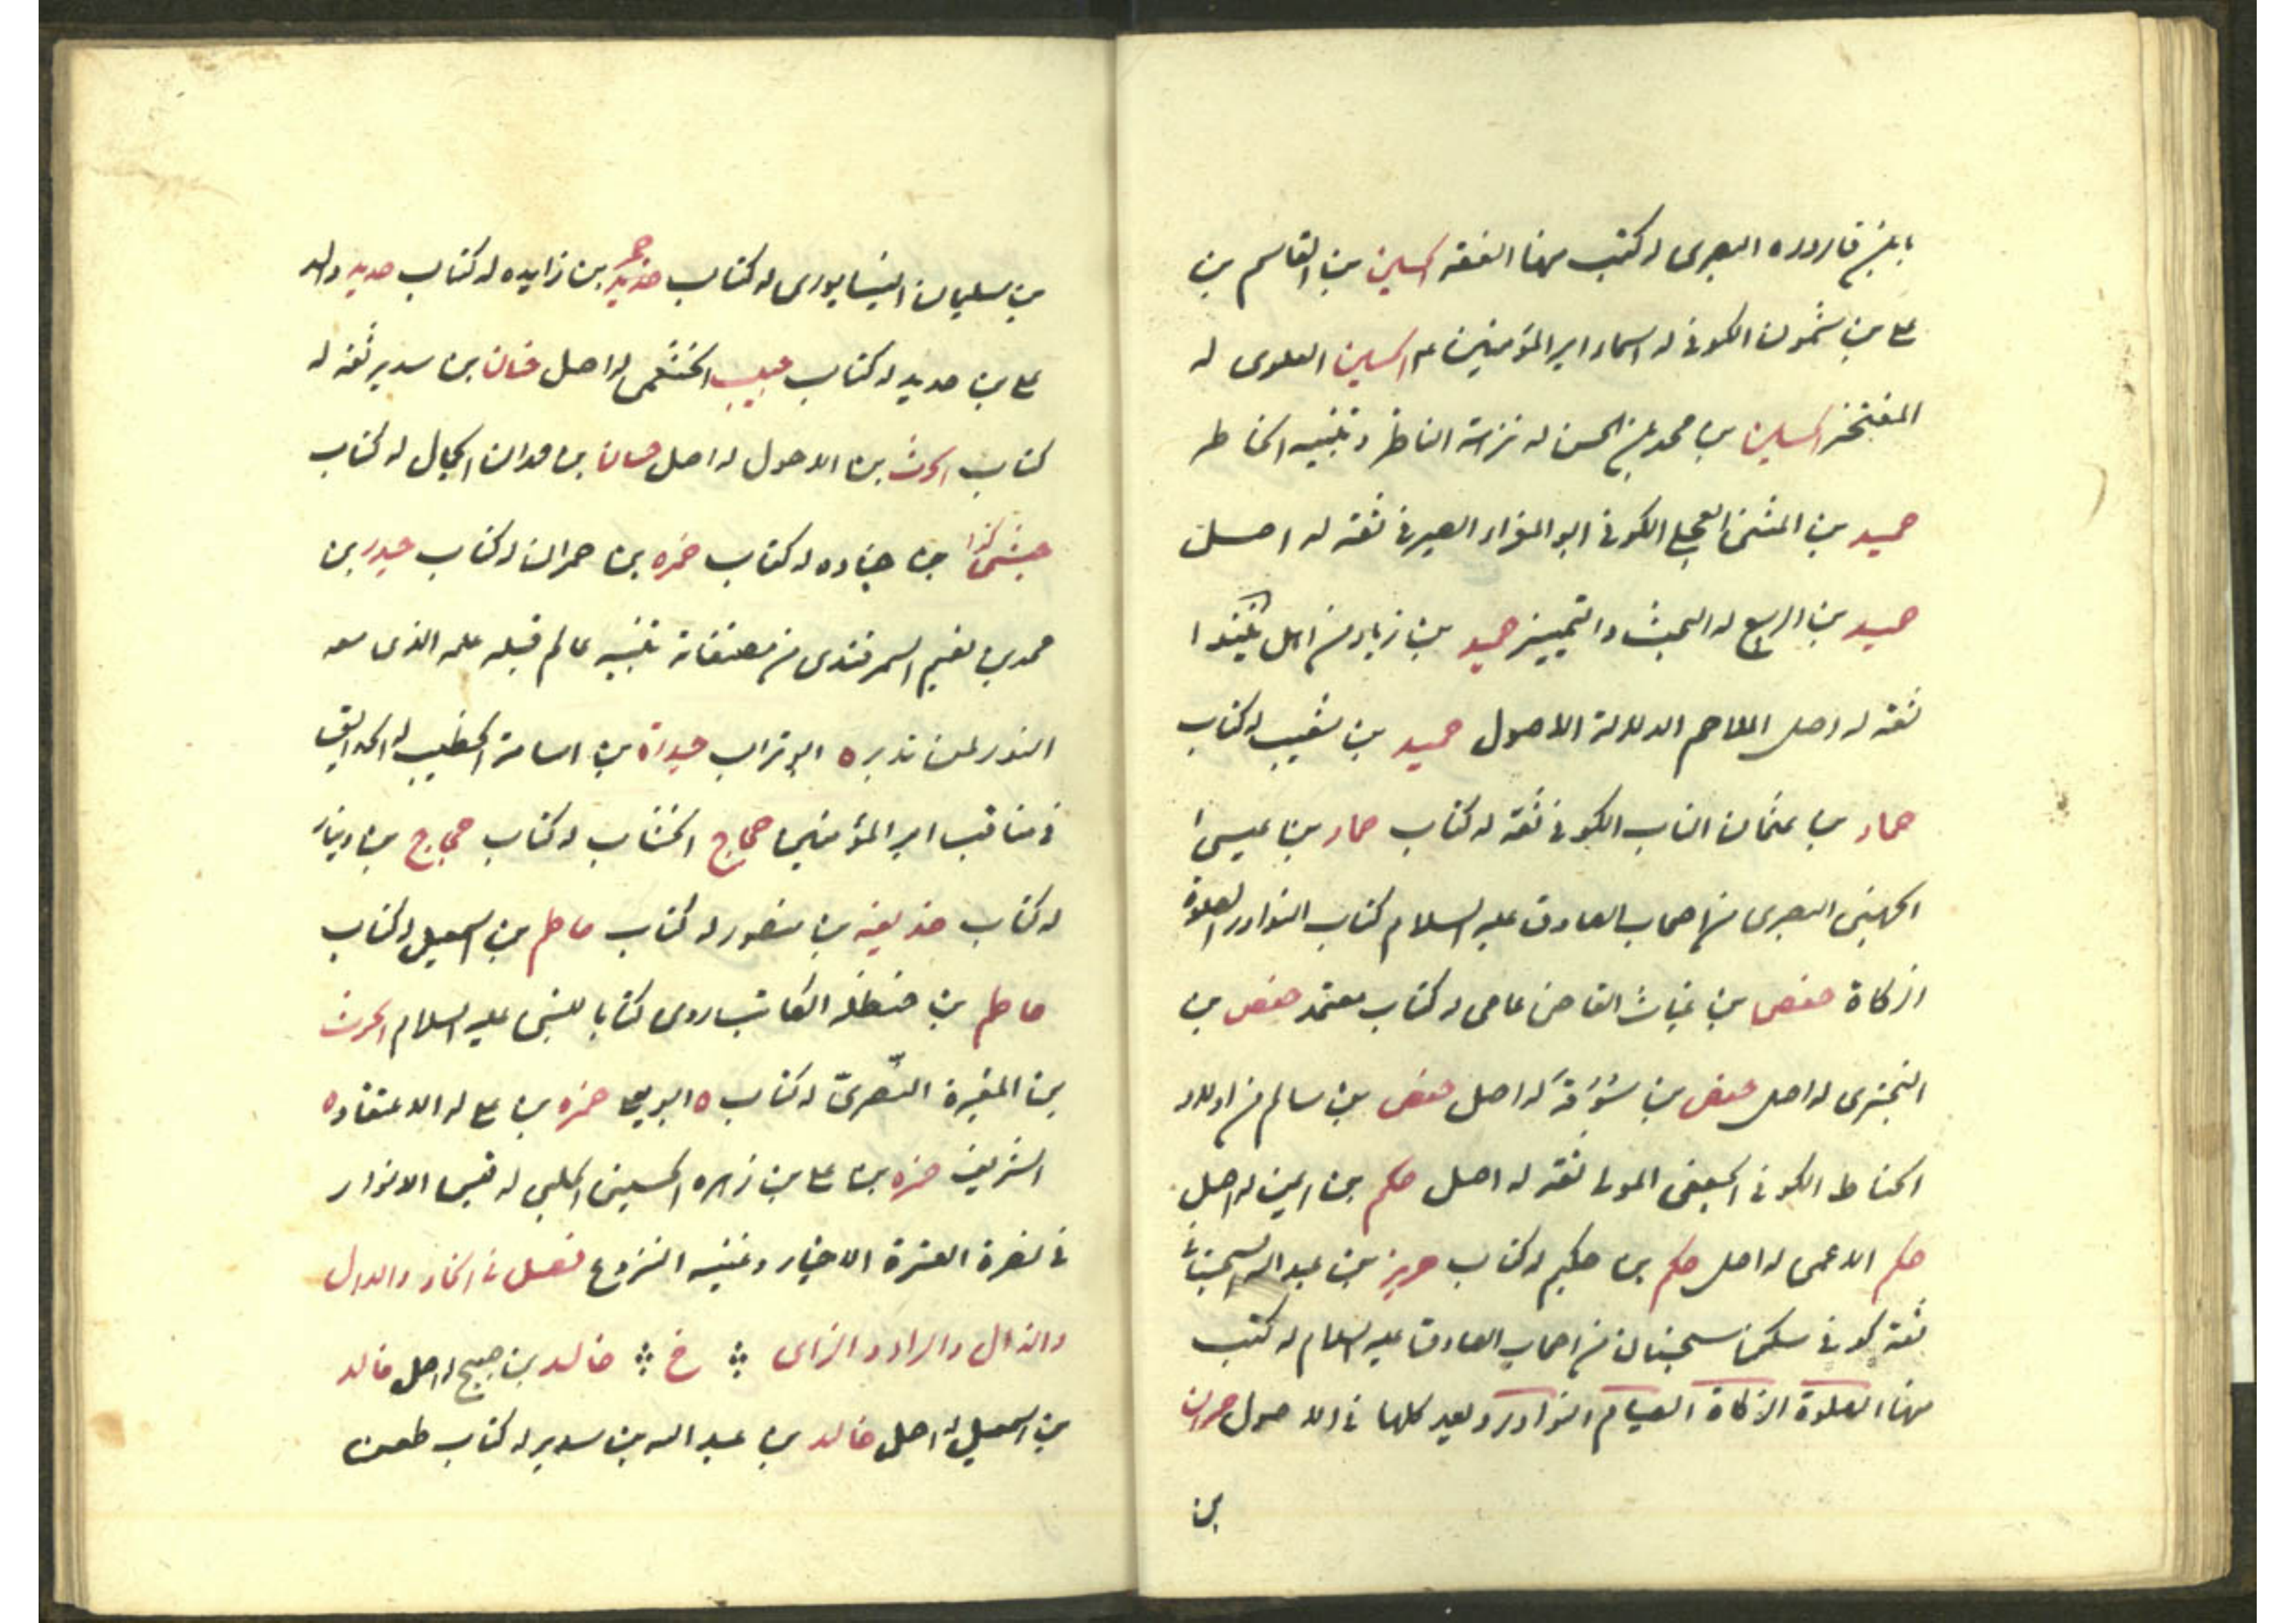 بابن قاروره البصرى له كتب منها الفقه الحسين بن القاسم بن
على بن شمون الكوفى له اسماء امير المؤمنين ع الحسين العلوى له
المفتخر الحسين بن محمد بن الحسن له نزهة الناظر و تنبيه الخاطر
حميد بن المثنى العجلى الكوفى ابو المغراء الصيرفى ثقة له اصل
حميد بن الربيع له البحث و التمييز حميد بن زياد من اهل نينوا
ثقة له اصل الملاحم الدلالة الاصول حميد بن شعيب له كتاب
حماد بن عثمان الناب الكوفى ثقة له كتاب حماد بن عيسى
الجهنى البصرى من اصحاب الصادق عليه السلام كتاب النوادر الصلوة
الزكاة حفص بن غياث القاضى عامى له كتاب معتمد حفص بن
البخترى له اصل حفص بن سوقة له اصل حفص بن سالم من اولاد
الحناط الكوفى الجعفى المولى ثقة له اصل حكم بن ايمن له اصل
حكم الاعمى له اصل حكم بن حكيم له كتاب حريز بن عبد الله السجستانى
ثقة كوفى سكن سجستان من اصحاب الصادق عليه السلام له كتب
منها الصلوة الزكاة الصيام النوادر و تعد كلها فى الاصول حمدان
بن
بن سليمان النيسابورى له كتاب حديد بن زايده له كتاب حديد والد
على بن حديد له كتاب حبيب الخثعمى له اصل حنان بن سدير ثقة له
كتاب الحرث بن الاحول له اصل حسان بن مهران الجمال له كتاب
حبشى كذا بن جناده له كتاب حمزه بن حمران له كتاب حيدر بن
محمد بن نعيم السمرقندى من مصنفاته تنبيه عالم قتله علمه الذى معه
النور لمن تدبره ابو تراب حيدرة بن اسامة الخطيب له الحدايق
فى مناقب امير المؤمنين حجاج الخشاب له كتاب حجاج بن دينار
له كتاب حذيفه بن منصور له كتاب حاطم بن اسمعيل له كتاب
حاطم بن حنظله الكاتب روى كتابا للنبى عليه السلام الحرث
بن المغيرة النصرى له كتاب ابو يعلى حمزه بن على له الاعتقاده
الشريف حمزه بن على بن زهره الحسينى الحلبى له قبس الانوار
فى نصرة العترة الاخيار و غنيه النزوع فصل فى الخاء والدال
والذال والراء والزاى خ خالد بن صبيح له اصل خالد
بن اسمعيل له اصل خالد بن عبد الله بن سدير له كتاب طعن